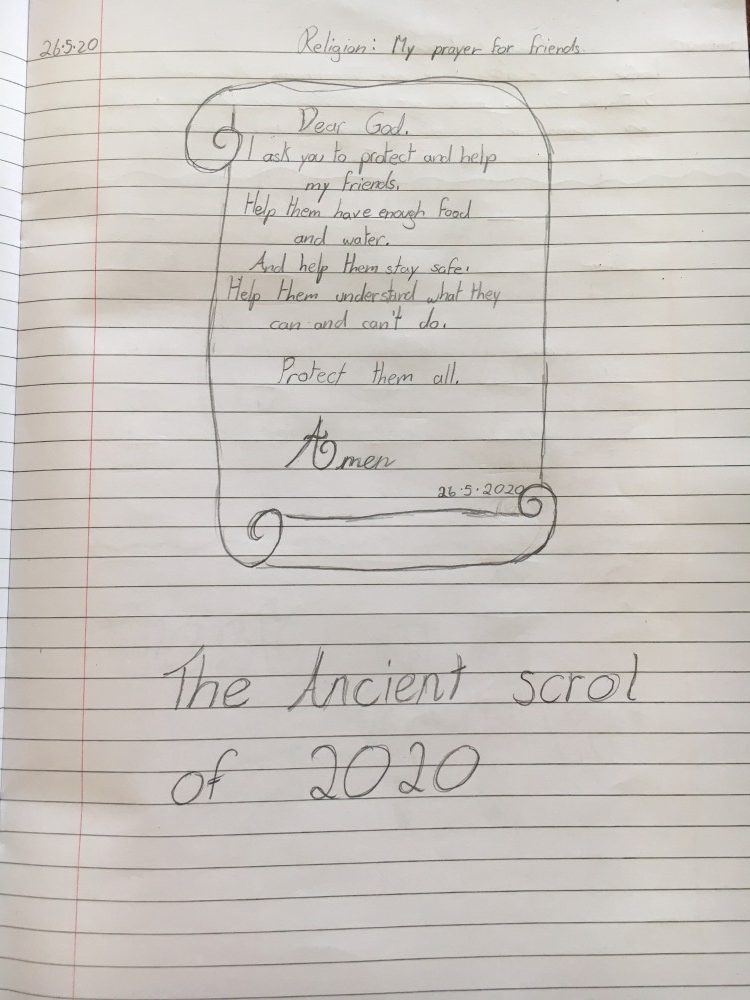 26.5.20
Religion: My prayer for friends.
Dear God.
I ask you to protect and help
my friends.
Help them have enough food
and water.
And help them stay safe.
Help them understand what they
can and can't do.
Protect them all.
Amen
26.5.2020
The Ancient scrol
of 2020